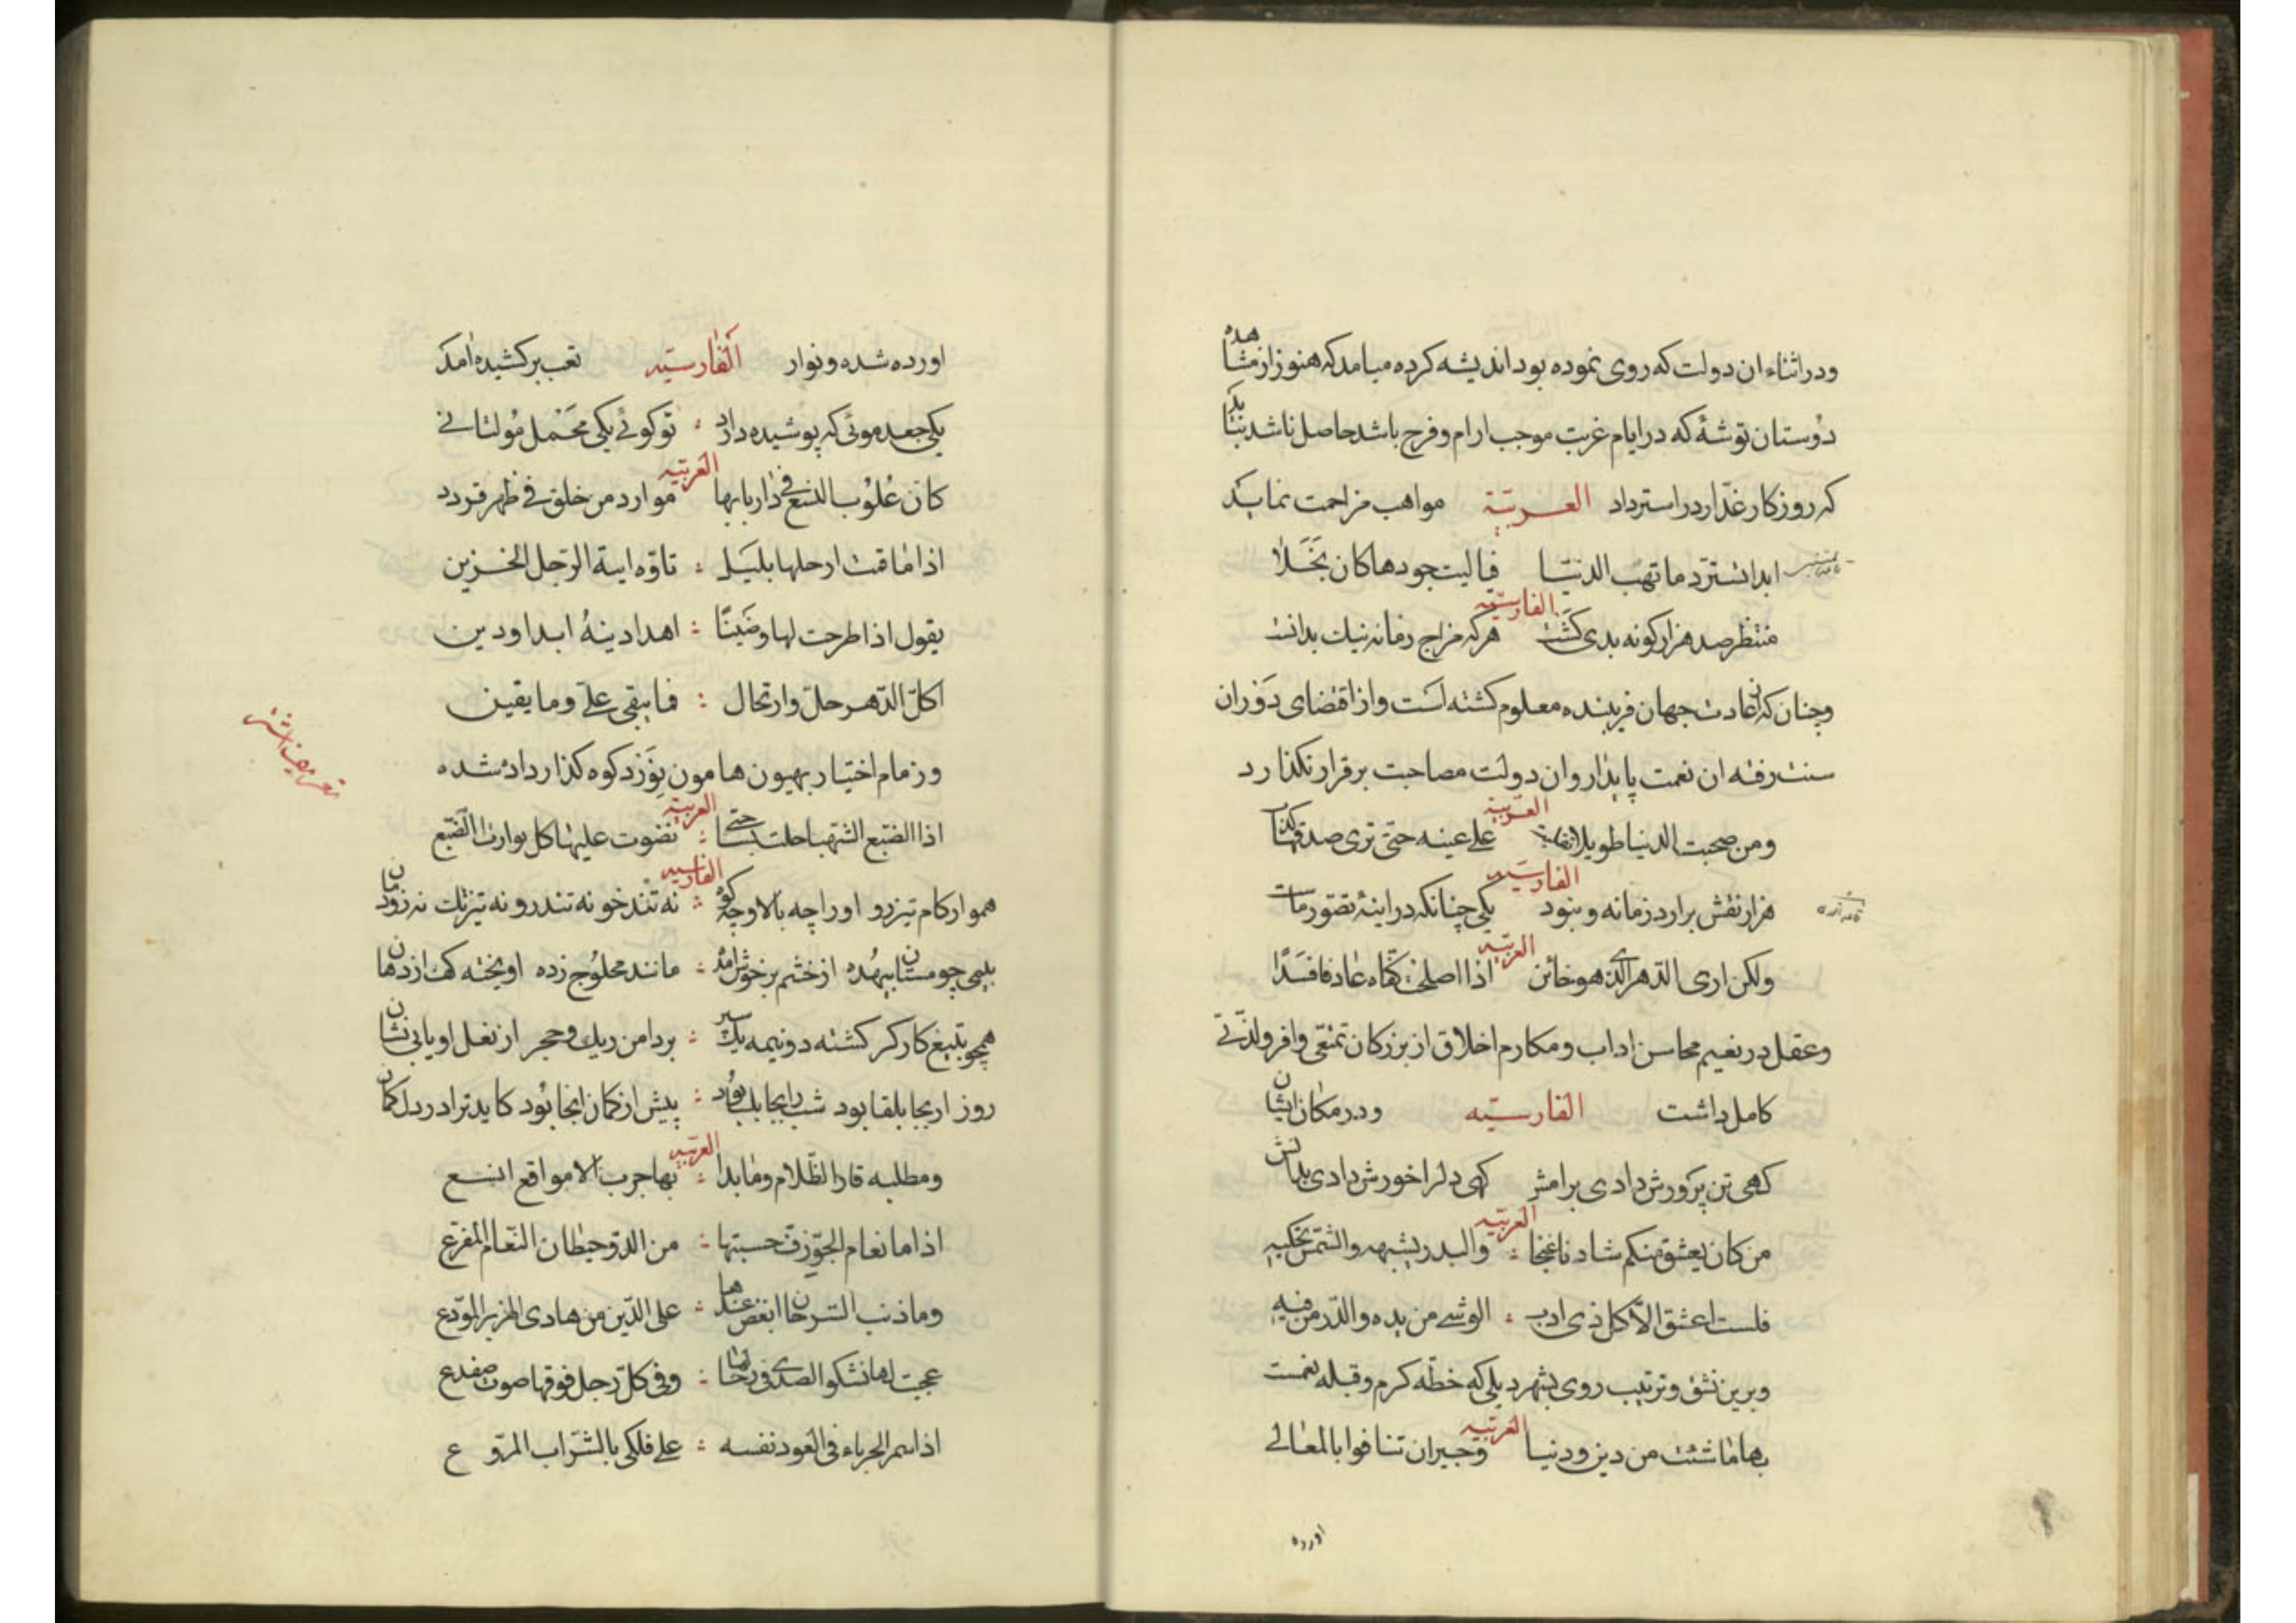 ودر اثناء ان دولت که روی نموده بود اندیشه کرده میامد که هنوز از مشاهده
دوستان توشهٔ که در ایام غربت موجب ارام وفرح باشد حاصل ناشد نباید
که روزکار غدّار در استرداد العربیّة مواهب مزاحمت نماید
ابدا تستردّ ما تهب الدنیا فیالیت جودها کان بخلا
الفارسیّه
منتظر صد هزار کونه بدی کشت هرکه مزاج زمانه نیك بدانست
وچنان که از عادت جهان فریبنده معلوم کشته است واز اقتضای دوران
سنت رفته ان نعمت پایدار وان دولت مصاحبت برقرار نکذارد
العربیّة
ومن صحبت الدنیا طویلا علی عینه حتی تری صدقها کذبا
الفارسیّه
هزار نقش برارد زمانه ونبود یکی چنانکه در اینهٔ تصوّر ماست
العربیّه
ولکن اری الدّهر الّذی هو خائن اذا اصلحت کفّاه عاد فافسدا
وعقل در نعیم محاسن اداب ومکارم اخلاق از بزرکان تمتّعی وافر ولذّتی
کامل داشت الفارسیّه ودر مکان ایشان
کهی تن پرورش دادی برامش کهی دل را خورش دادی بدانش
العربیّه
من کان یعشق منکم شادنا غنجا والبدر یشبهه والشمس تحکیه
فلست اعشق الّا کل ذی ادب الوشی من یده والدّر من فیه
وبرین نسق وترتیب روی بشهر دیلی که خطّه کرم وقبله نعمت
العربیّه
بها ما شئت من دین ودنیا وجیران تنافوا بالمعالی
اورده
اورده شده ونوار الفارسیّه تعب برکشیده امد
یکی جعد موئی که پوشیده دارد تو کوئی یکی مخمل مولتانی
العربیّه
کان علوب النسع فی دایاتها موارد من خلق فی ظهر قردد
اذا ما قمت ارحلها بلیل تاوّه اهة الرّجل الحزین
یقول اذا طرحت لها وضینًا اهذا دینهٔ ابدا ودین
اکلّ الدّهر حلّ وارتحال فما یبقی علیّ وما یقین
تعریف اشتر
وزمام اختیار بهیون هامون نورد کوه کذار داده شده
العربیّه
الفارسیّه
هموار کام تیزرو اورا چه بالا وچه کو نه تندخو نه تندرو نه تیزتك نه زودمان
مانند محلوج زده اویخته کف از دهان
همچو بتیغ کارکر کشته دونیمه یك سر بر دامن ریك وحجر از نعل او یابی نشان
پیش از کمان انجا بود کاید ترا در دل کمان
العربیّه
اذا ما نعام الجوّ زفّ حسبتها من الدوّ خیطان النّعام المفزّع
علی الدّین من هادی الهزبر المودّع
وفی کلّ رحل فوقها صوت ضفدع
علی فلکی بالسّراب المروّع